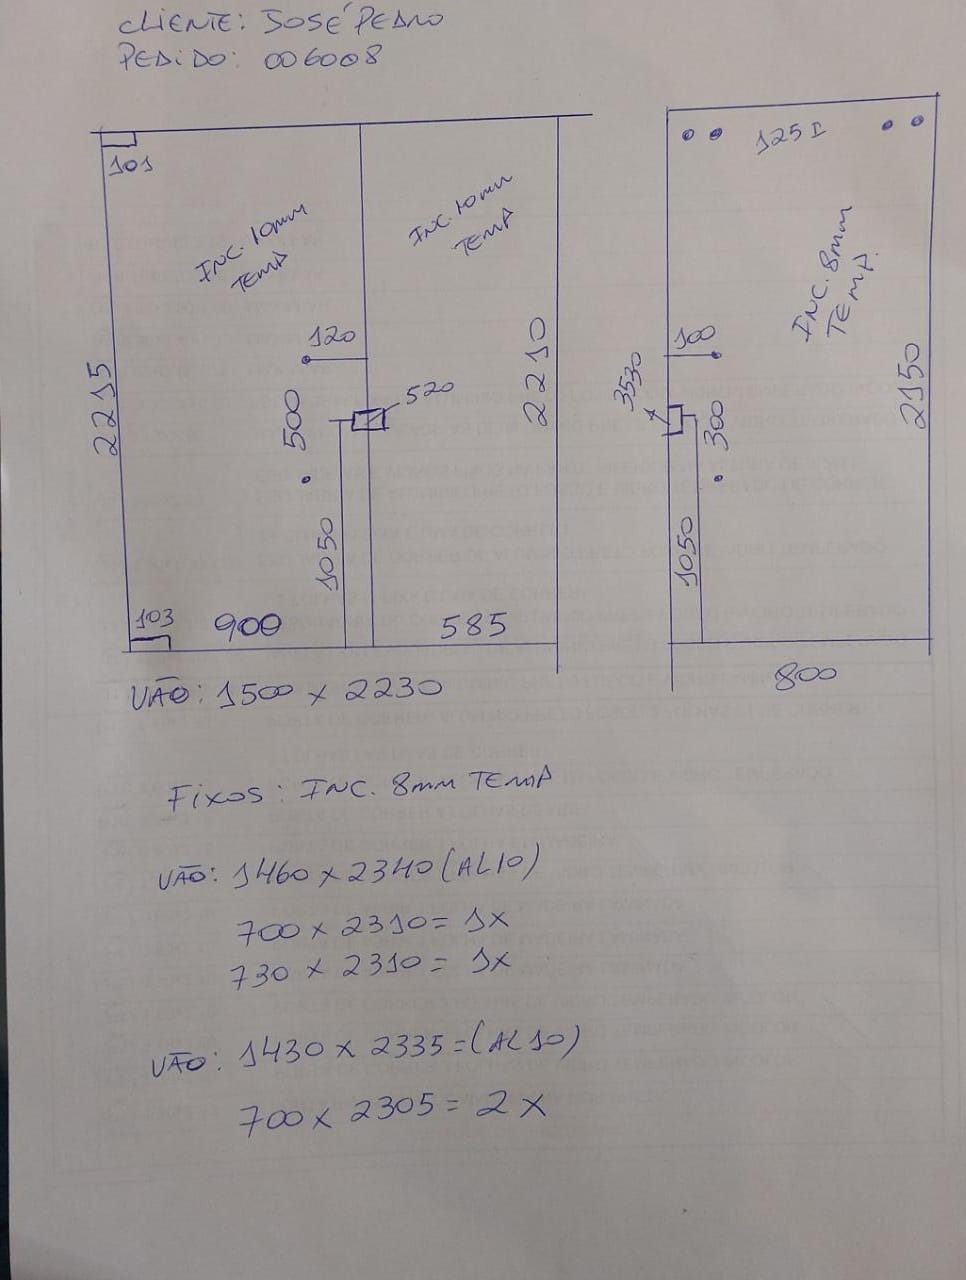 CLIENTE: JOSÉ PEDRO
PEDIDO: 006008
101
INC. 10mm
TEMP
INC. 10mm
TEMP
125I
INC. 8mm
TEMP.
120
100
520
3530
2215
500
2210
300
2150
1050
1050
103
900
585
800
VÃO: 1500 x 2230
FIXOS: INC. 8mm TEMP
VÃO: 1460 x 2340 (AL10)
700 x 2310 = 1x
730 x 2310 = 1x
VÃO: 1430 x 2335 = (AL10)
700 x 2305 = 2x